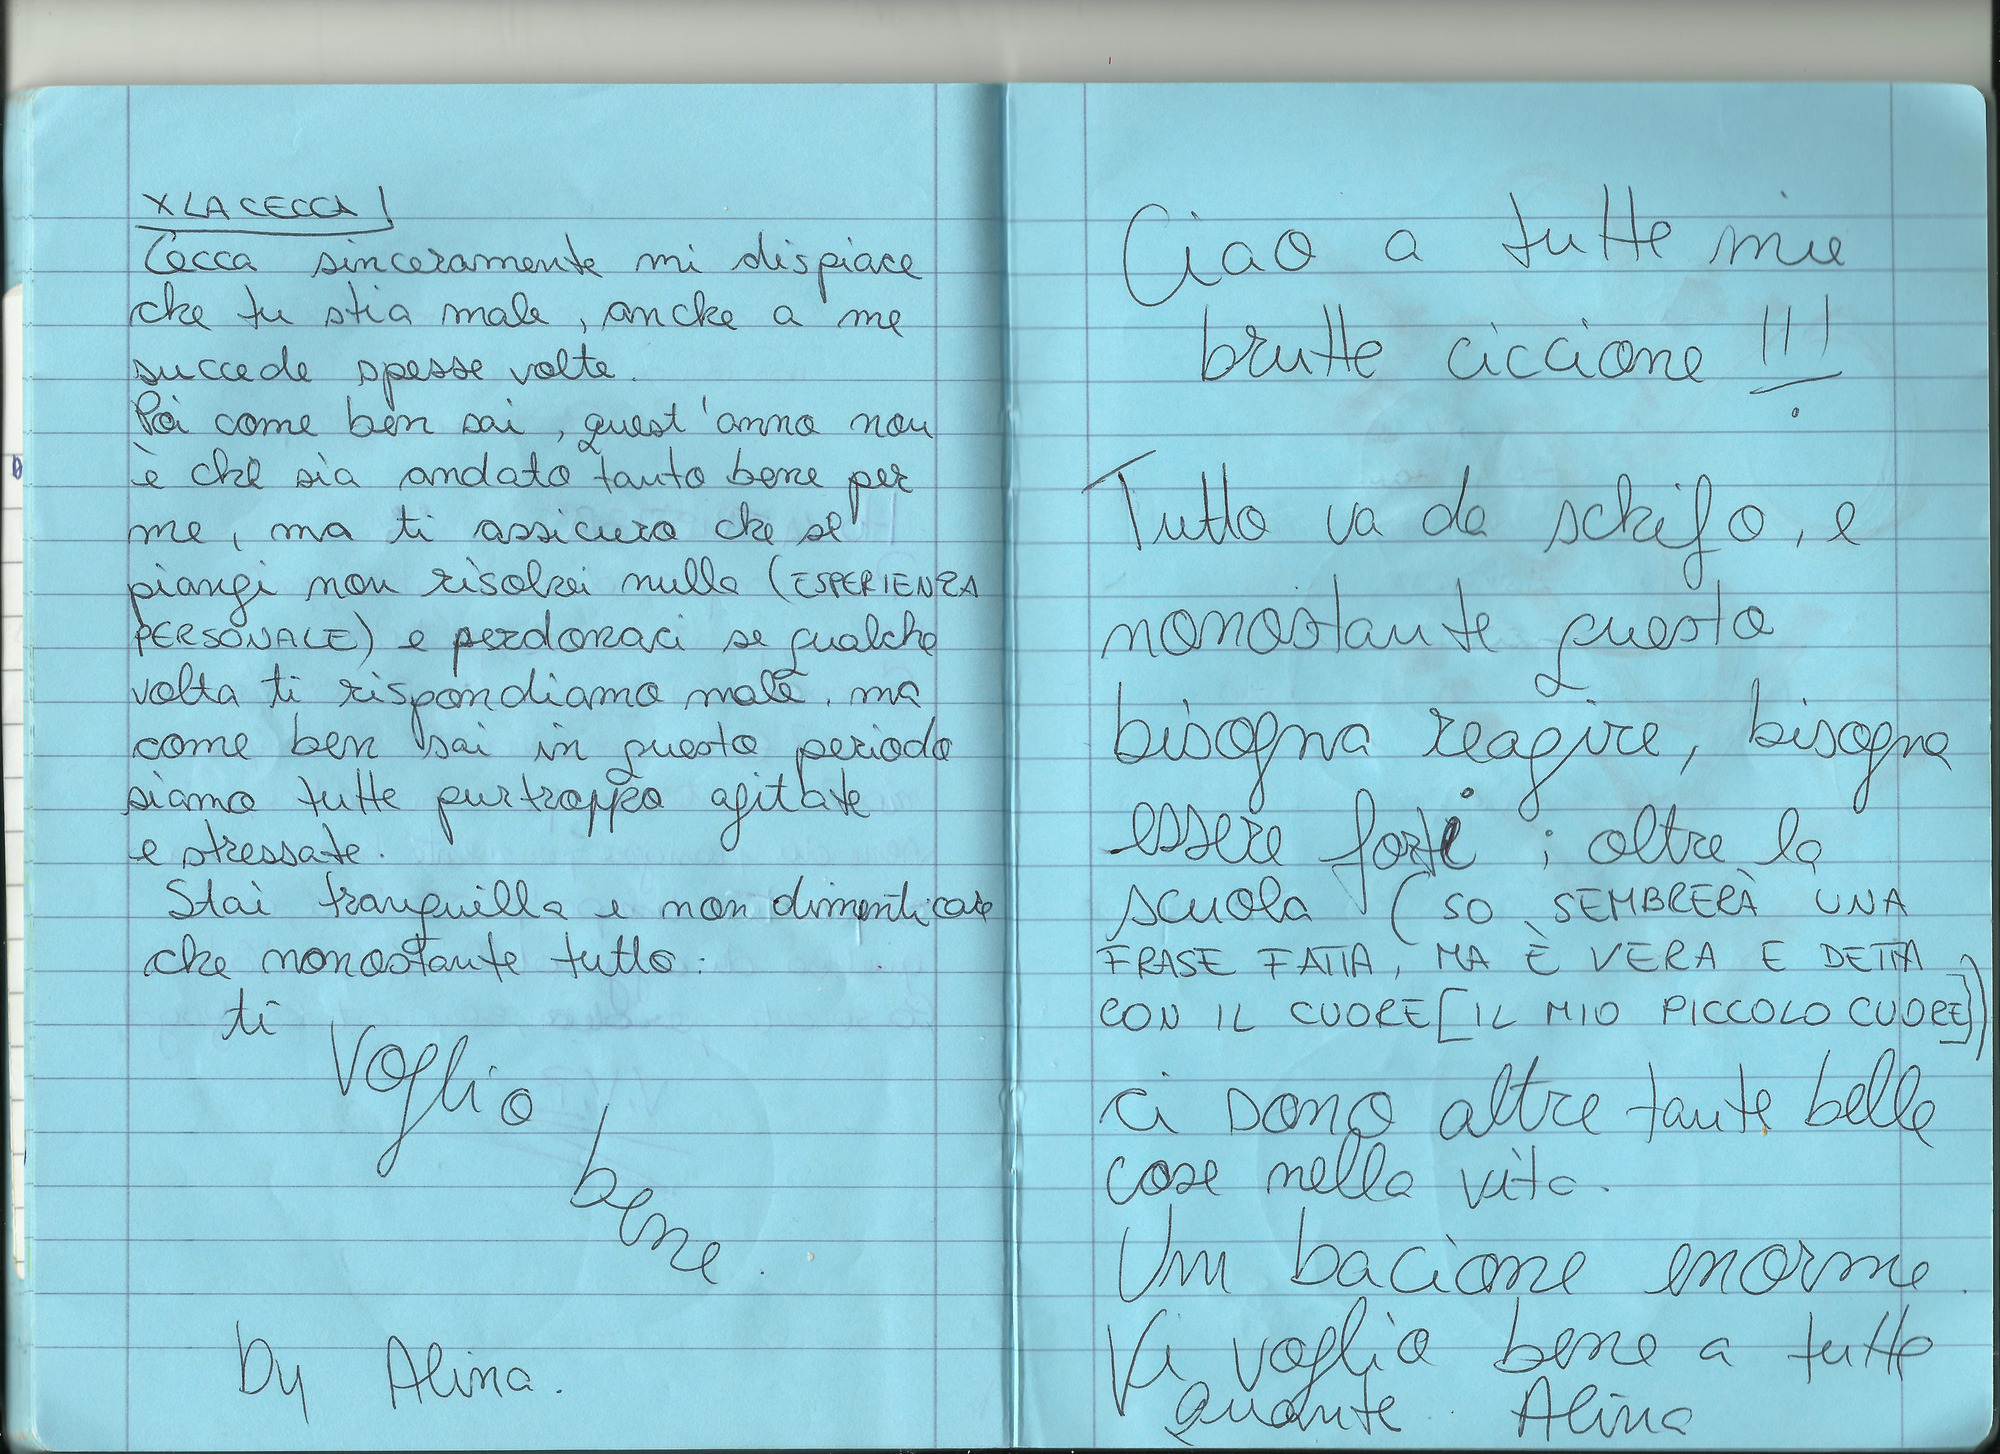 X LA CECCA!
Cecca sinceramente mi dispiace
che tu stia male, anche a me
succede spesse volte.
Poi come ben sai, quest'anno non
è che sia andato tanto bene per
me, ma ti assicuro che se
piangi non risolvi nulla (ESPERIENZA
PERSONALE) e perdonaci se qualche
volta ti rispondiamo male, ma
come ben sai in questo periodo
siamo tutte purtroppo agitate
e stressate.
Stai tranquilla e non dimenticare
che nonostante tutto:
ti
voglio
bene.
by Alina.
Ciao a tutte mie
brutte ciccione !!!
Tutto va da schifo, e
nonostante questo
bisogna reagire, bisogna
essere forti ; oltre la
scuola (SO SEMBRERÀ UNA
FRASE FATTA, MA È VERA E DETTA
CON IL CUORE [IL MIO PICCOLO CUORE])
ci sono altre tante belle
cose nella vita.
Un bacione enorme.
Vi voglio bene a tutte
quante. Alina